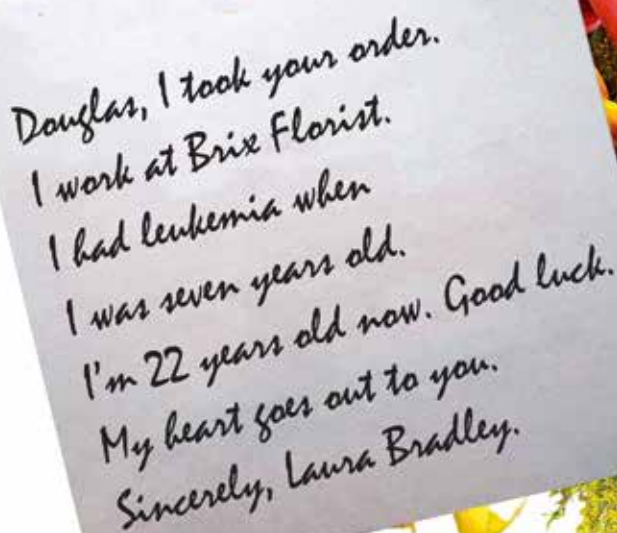 Douglas, I took your order.
I work at Brix Florist.
I had leukemia when
I was seven years old.
I'm 22 years old now. Good luck.
My heart goes out to you.
Sincerely, Laura Bradley.